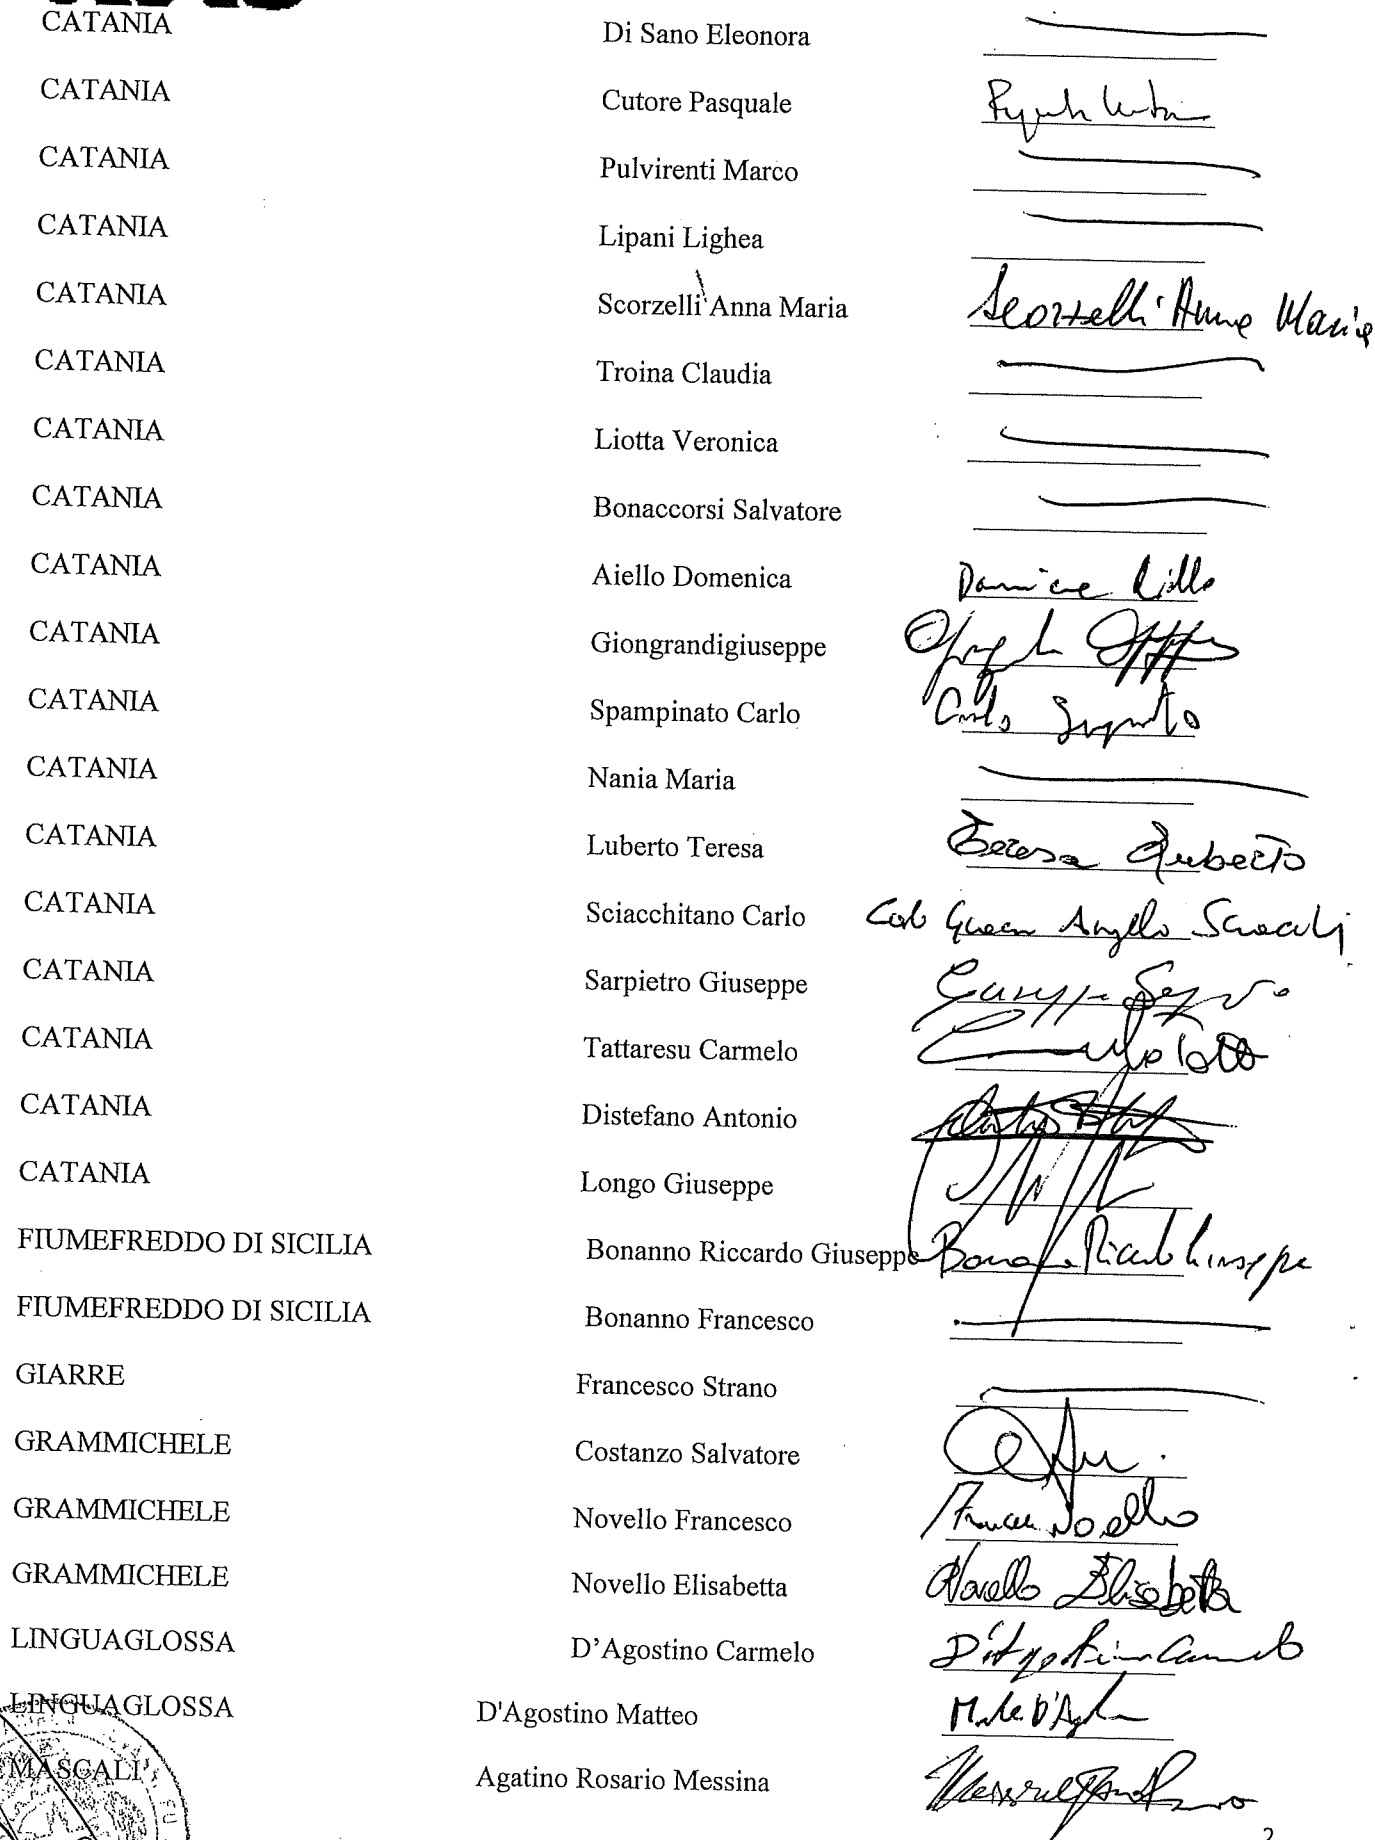 CATANIA Di Sano Eleonora
CATANIA Cutore Pasquale
CATANIA Pulvirenti Marco
CATANIA Lipani Lighea
CATANIA Scorzelli Anna Maria Scorzelli Anna Maria
CATANIA Troina Claudia
CATANIA Liotta Veronica
CATANIA Bonaccorsi Salvatore
CATANIA Aiello Domenica
CATANIA Giongrandigiuseppe
CATANIA Spampinato Carlo Carlo
CATANIA Nania Maria
CATANIA Luberto Teresa Teresa Luberto
CATANIA Sciacchitano Carlo Angelo
CATANIA Sarpietro Giuseppe
CATANIA Tattaresu Carmelo
CATANIA Distefano Antonio
CATANIA Longo Giuseppe
FIUMEFREDDO DI SICILIA Bonanno Riccardo Giuseppe
FIUMEFREDDO DI SICILIA Bonanno Francesco
GIARRE Francesco Strano
GRAMMICHELE Costanzo Salvatore
GRAMMICHELE Novello Francesco
GRAMMICHELE Novello Elisabetta Novello Elisabetta
LINGUAGLOSSA D’Agostino Carmelo D'Agostino Carmelo
LINGUAGLOSSA D'Agostino Matteo
MASCALI Agatino Rosario Messina
2